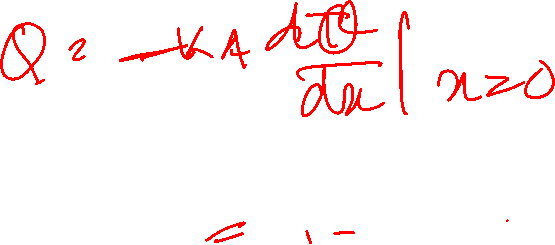 Q = -kA dθ/dx | x=0
=